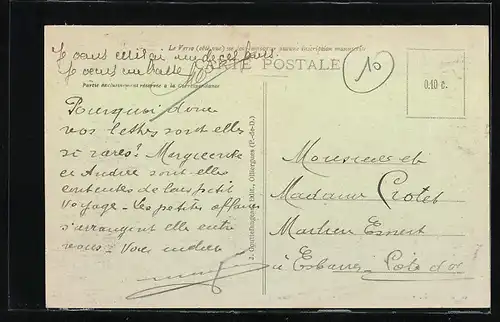 Le Verso (côté vue) ne doit comporter aucune inscription manuscrite
Je vous écris un de ces jours.
Je vous
CARTE POSTALE
10
0.10 c.
Partie exclusivement réservée à la Correspondance
Pourquoi donc
vos lettres sont elles
si rares? Marguerite
et André sont-elles
contentes de leur petit
voyage - Les petites affaires
s'arrangent elle entre
vous - Vous
Monsieur et
Madame Crotet
Ernest
à Esbarres Côte d'or